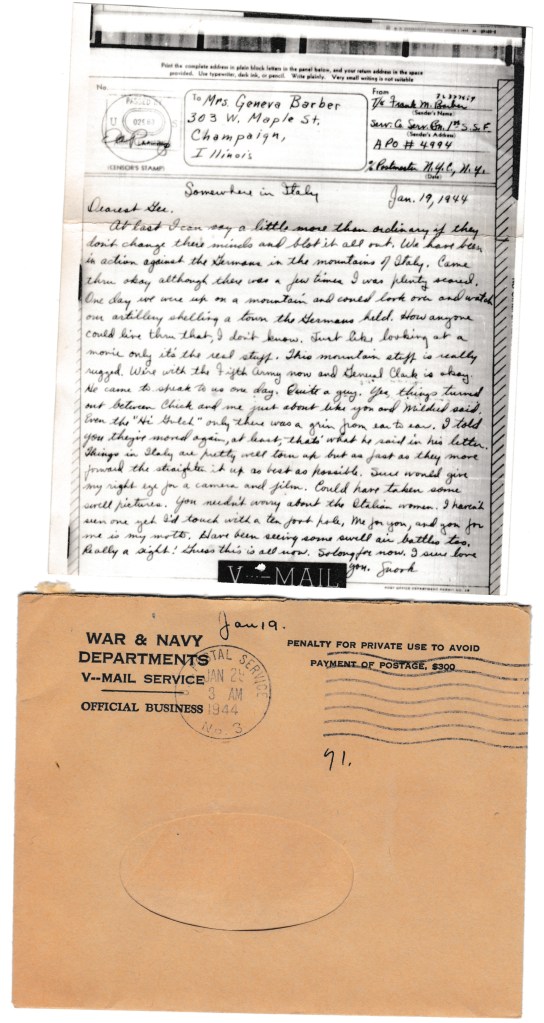 Print the complete address in plain block letters in the panel below, and your return address in the space
provided. Use typewriter, dark ink, or pencil. Write plainly. Very small writing is not suitable
No.
PASSED BY
U S
(CENSOR'S STAMP)
To Mrs. Geneva Barber
303 W. Maple St.
Champaign,
Illinois
From
T/5 Frank M. Barber
(Sender's Name)
Serv. Co Serv. Bn. 1st S.S.F.
(Sender's Address)
APO # 4994
℅ Postmaster N.Y.C., N.Y.
(Date)
Somewhere in Italy
Jan. 19, 1944
Dearest Gee.
At last I can say a little more than ordinary if they
don't change their minds and blot it all out. We have been
in action against the Germans in the mountains of Italy. Came
thru okay although there was a few times I was plenty scared.
One day we were up on a mountain and could look over and watch
our artillery shelling a town the Germans held. How anyone
could live thru that, I don't know. Just like looking at a
movie only it's the real stuff. This mountain stuff is really
rugged. We're with the Fifth Army now and General Clark is okay.
He came to speak to us one day. Quite a guy. Yes, things turned
out between Chick and me just about like you and Mildred said.
Even the "Hi Gulch" only there was a grin from ear to ear. I told
you they'er moved again, at least, that's what he said in his letter.
Things in Italy are pretty well torn up but as fast as they move
forward the straighten it up as best as possible. Sure would give
my right eye for a camera and film. Could have taken some
swell pictures. You needn't worry about the Italian women. I haven't
seen one yet I'd touch with a ten foot pole. Me for you, and you for
me is my motto. Have been seeing some swell air battles too.
Really a sight! Guess this is all now. So long for now. I sure love
you. Snork
V···—MAIL
Jan 19.
WAR & NAVY
DEPARTMENTS
V--MAIL SERVICE
OFFICIAL BUSINESS
POSTAL SERVICE
JAN 29
3 AM
1944
No. 3
PENALTY FOR PRIVATE USE TO AVOID
PAYMENT OF POSTAGE, $300
91.